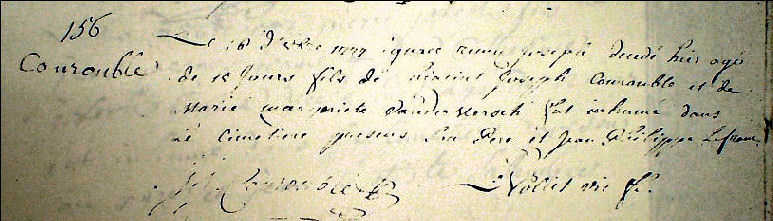 156
Courouble
Le 18 d'8bre 1777 ignace Joseph décédé hier agé
de 15 Jours fils de Vincent Joseph Courouble et de
Marie marguerite Vanderkersch fut inhumé dans
le Cimetiere presens Son Pere et Jean Philippe Lefranc
Courouble
Nollet vic